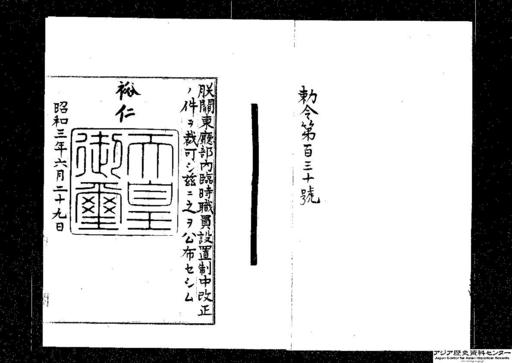 勅令第百三十號
朕關東廳部内臨時職員設置制中改正
ノ件ヲ裁可シ茲ニ之ヲ公布セシム
裕仁
天皇御璽
昭和三年六月二十九日
アジア歴史資料センター
Japan Center for Asian Historical Records